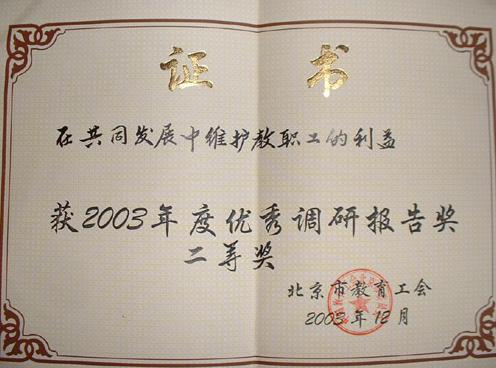 证书
在共同发展中维护教职工的利益
获2003年度优秀调研报告奖
二等奖
北京市教育工会
2003年12月